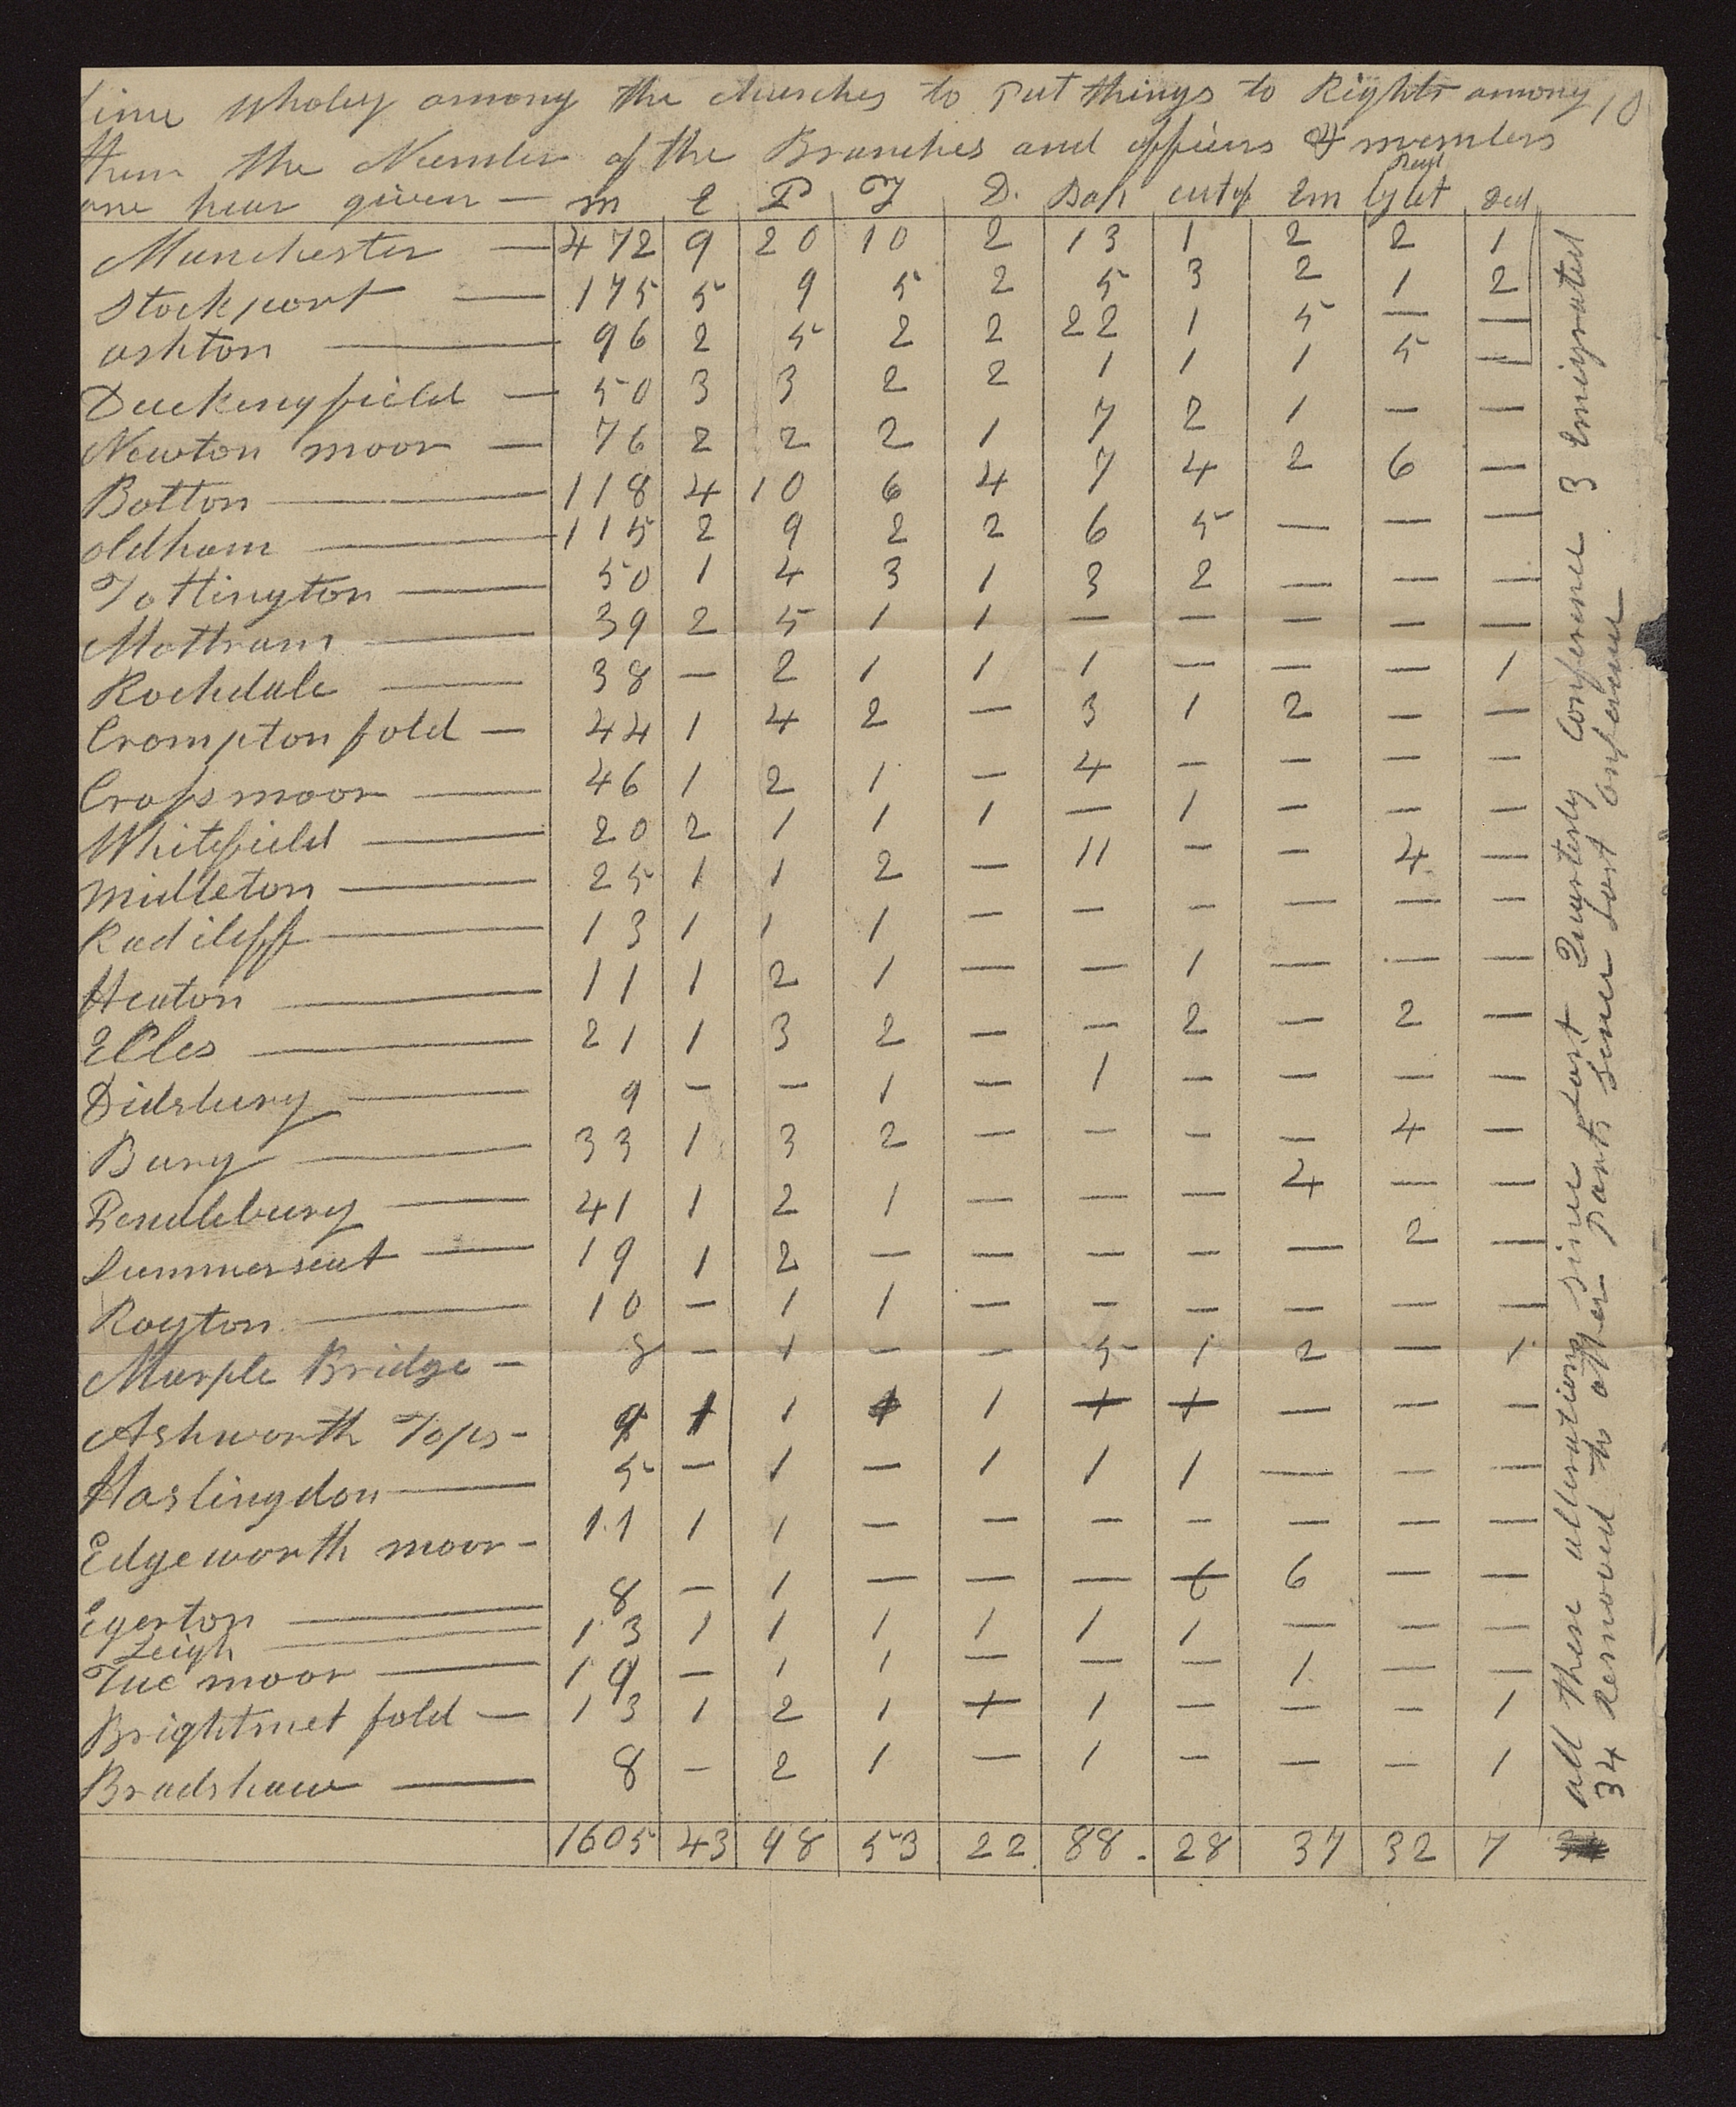 time wholey among the churches to put things to Rights among 10
them the Number of the Branches and officers & members
are hear given — m E P T D. Bap cut of Em by let Ded
Manchester — 472 9 20 10 2 13 1 2 2 1
Stockport — 175 5 9 5 2 5 3 2 1 2
ashton — 96 2 5 2 2 22 1 5 — —
Duckingfield — 50 3 3 2 2 1 1 1 5 —
Newton moor — 76 2 2 2 1 7 2 1 — —
Bolton — 118 4 10 6 4 7 4 2 6 —
oldham — 115 2 9 2 2 6 5 — — —
Tottington — 50 1 4 3 1 3 2 — — —
Mottram — 39 2 5 1 1 — — — — —
Rochdale — 38 — 2 1 1 1 — — — 1
Crompton fold — 44 1 4 2 — 3 1 2 — —
Crossmoor — 46 1 2 1 — 4 — — — —
Whitefield — 20 2 1 1 1 — 1 — — —
Midleton — 25 1 1 2 — 11 — — 4 —
Radcliff — 13 1 1 1 — — — — — —
Heaton — 11 1 2 1 — — 1 — — —
Elles — 21 1 3 2 — — 2 — 2 —
Didsbury — 9 — — 1 — 1 — — — —
Bury — 33 1 3 2 — — — — 4 —
Pendlebury — 41 1 2 1 — — — 4 — —
Summerseat — 19 1 2 — — — — — 2 —
Royton — 10 — 1 1 — — — — — —
Marple Bridge — 8 — 1 — — 5 1 2 — 1
Ashworth Tops — 9 1 1 1 1 1 1 — — —
Haslingdon — 5 — 1 — 1 1 1 — — —
Edgeworth moor — 11 1 1 — — — — — — —
Egerton — 8 — 1 — — — 6 6 — —
Leigh — 13 1 1 1 1 1 1 — — —
Tue moor — 19 — 1 1 — — — 1 — —
Brightmet fold — 13 1 2 1 1 1 — — — 1
Bradshaw — 8 — 2 1 — 1 — — — 1
1605 43 98 53 22 88. 28 37 32 7
all these allterations since Last Quarterly Conference 3 Emigrated
34 Removed to other parts since Last Conference